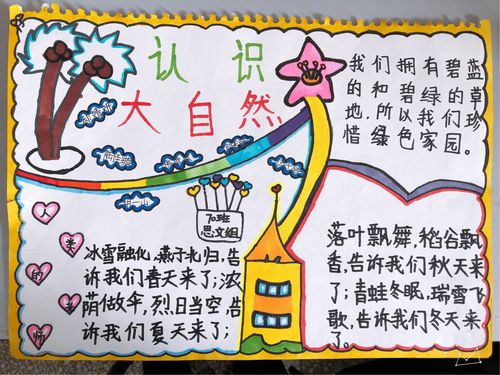 认识
大自然
我们拥有碧蓝
的和碧绿的草
地,所以我们珍
惜绿色家园。
人
类
的
老
师
70班
思文组
冰雪融化,燕子北归,告
诉我们春天来了;浓
荫做伞,烈日当空,告
诉我们夏天来了;
落叶飘舞,稻谷飘
香,告诉我们秋天来
了;青蛙冬眠,瑞雪飞
歌,告诉我们冬天来
了。